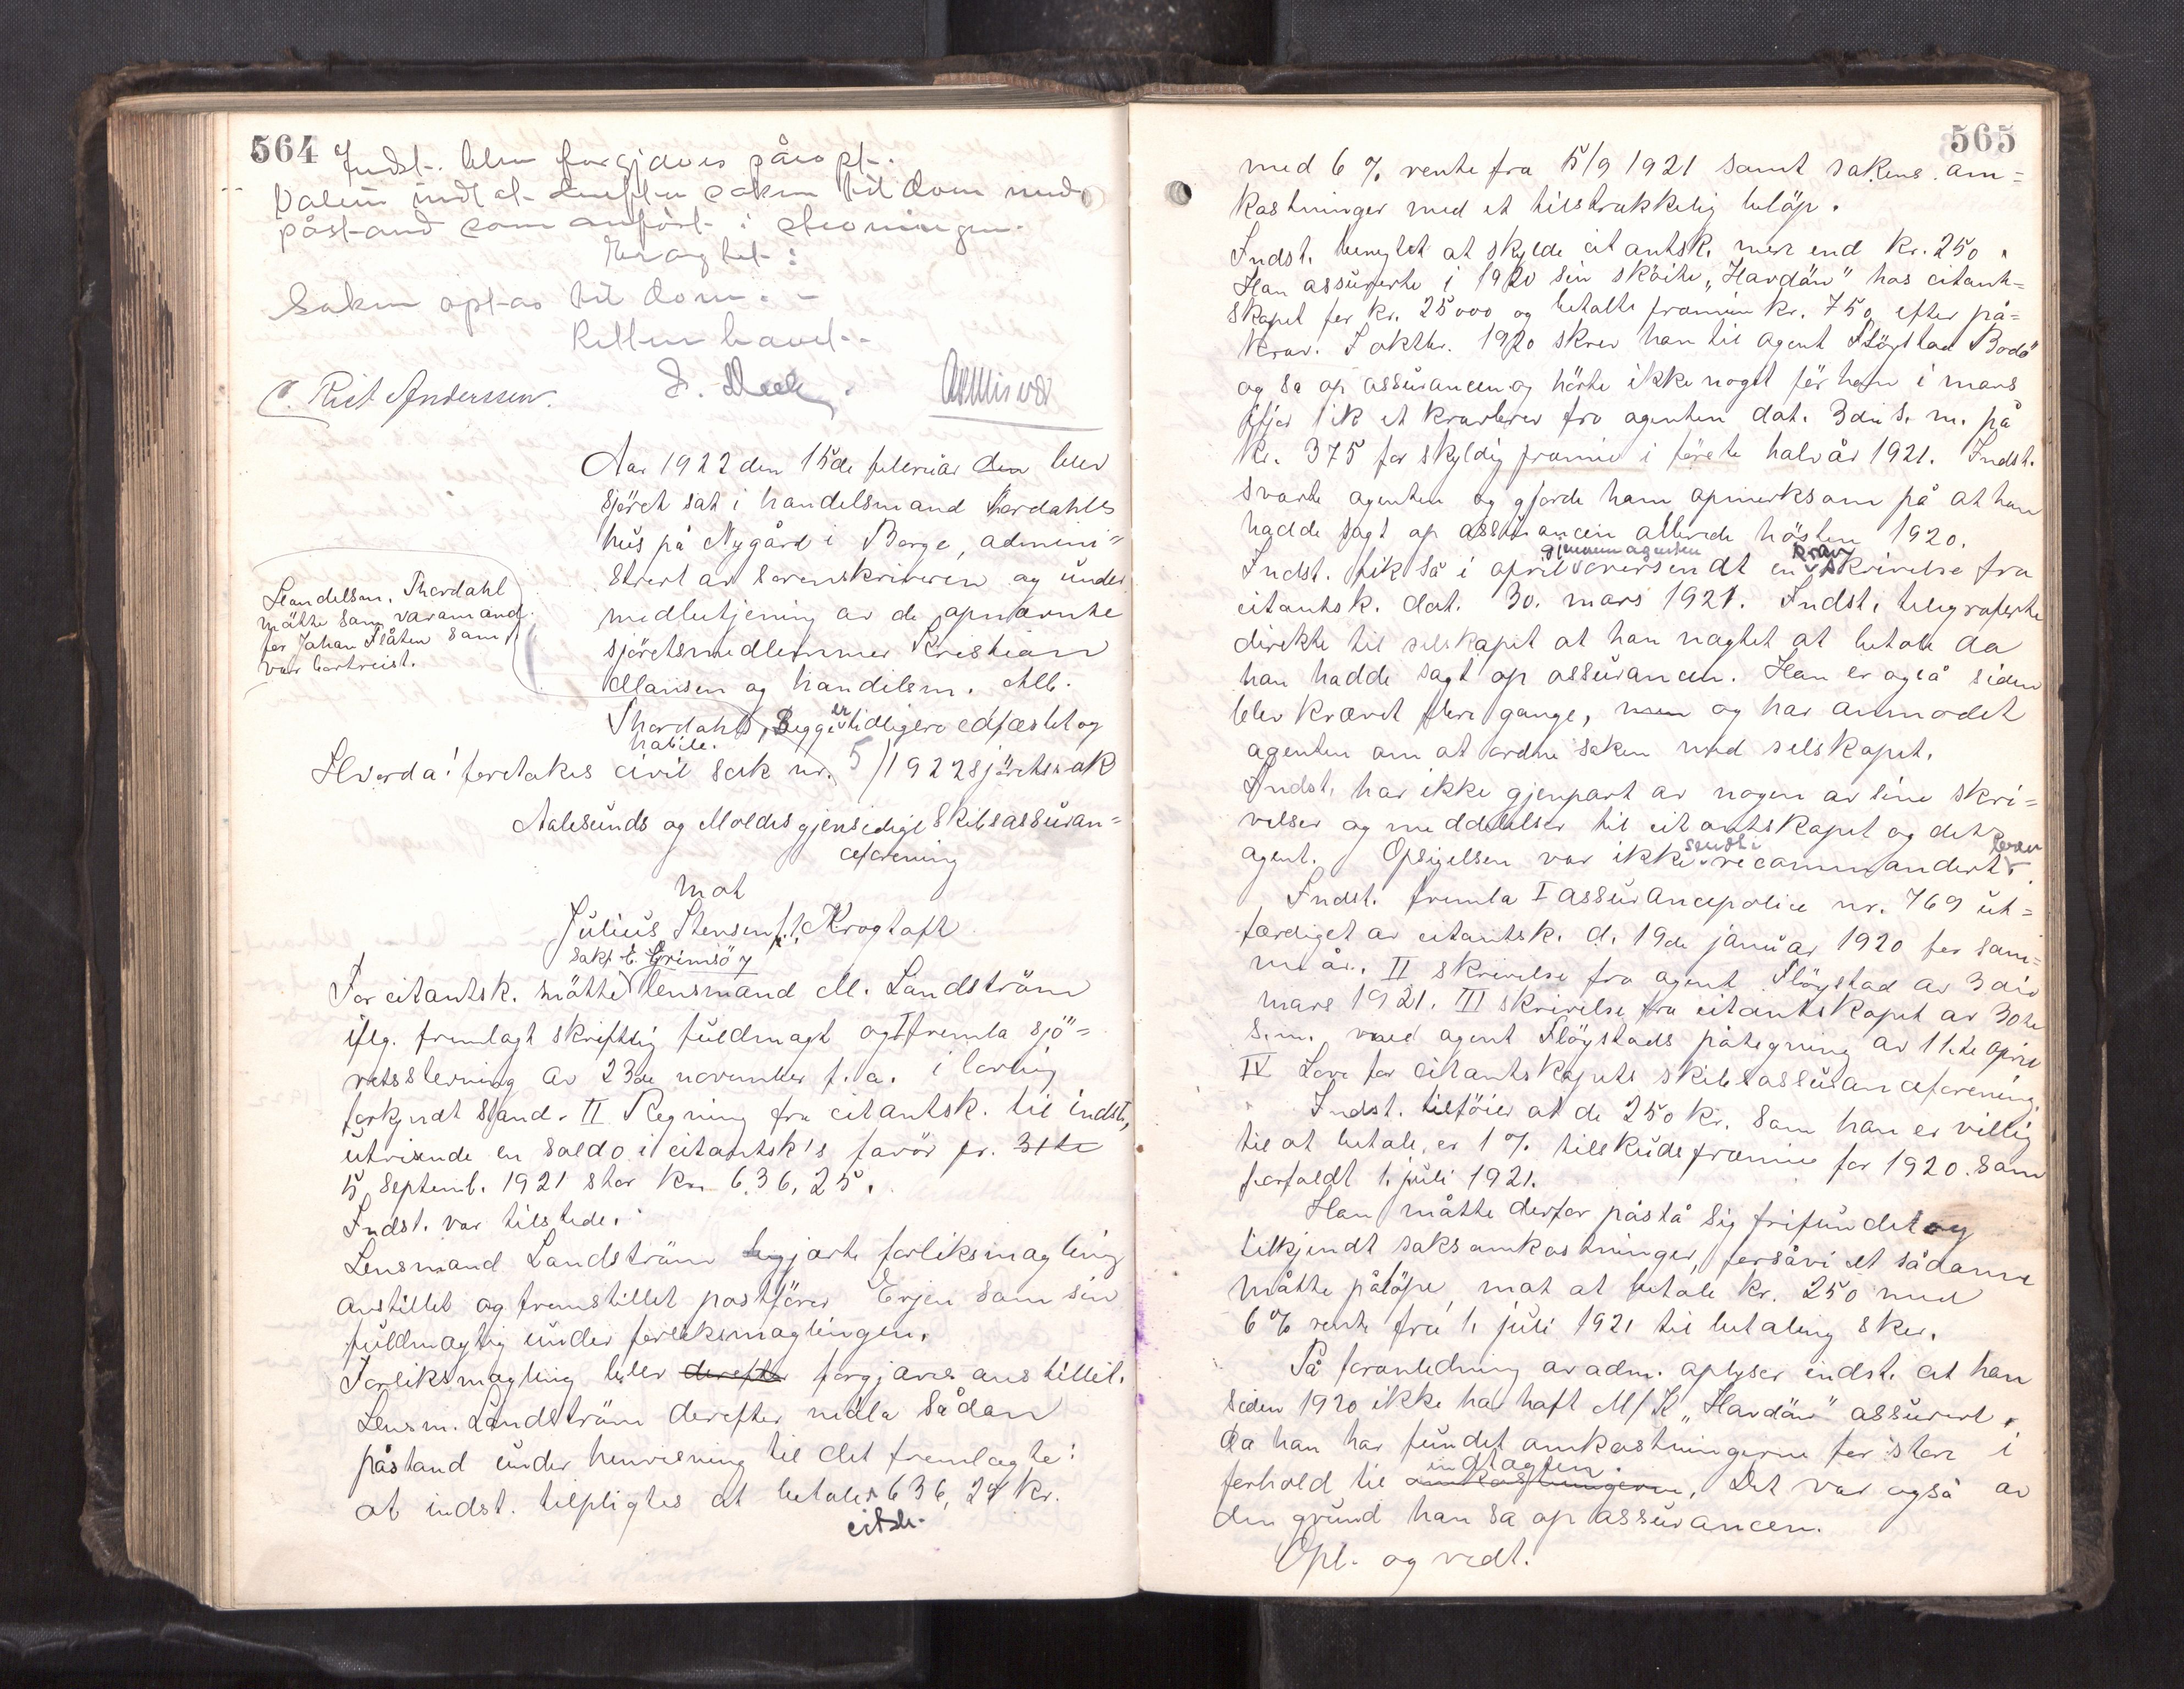 564
Indst. blev forgjæves påropt.
Dalen indlot derefter saken til dom med
påstand som anført i stevningen.
Eragtet:
Saken optas til dom.-
Retten hævet.-
Rich Anderssen.
Aar 1922 den 15de februar den blev
sjöret sat i handelsmand Thordahls
hus på Nygård i Borge, admini=
strert av sorenskriveren og under
medbetjening av de opnævnte
sjöretsmedlemmer Kristian
Marisen og handelsm. Alb.
Thordahl, Begge er tidligere edfæstet og
habile.
Handelsm. Thordahl
mötte som varamand
for Johan Flåten som
var bortreist.
Hvorda! foretokes civil sak nr. 5/1922 sjöretssak
Aalesunds og Moldes gjensidige Skibsassuran=
ceforening
mot
Julius Stensen f. Krogtoft
sakf. E. Grimsö
For citantsk. mötte lensmand M. Landström
iflg. fremlagt skriftlig fuldmagt og I fremla sjö=
retsstevning av 23de november f.a. i lovlig
forkyndt stand. II Regning fra citantsk. til indst.,
utvisende en saldo i citantsk's favör pr. 31te
5 septemb. 1921 stor kr. 636,25.
Indst. var tilstede.
Lensmand Landström begjærte forliksmægling
anstillet og fremstillet postförer Erjen som sin
fuldmægtig under forliksmæglingen.
Forliksmægling blev derefter forgjæves anstillet.
Lensm. Landström derefter nedla sådan
påstand under henvisning til det fremlagte:
at indst. tilpligtes at betale citsk. 636,25 kr.
565
med 6 % rente fra 5/9 1921 samt sakens om=
kostninger med et tilstrækkelig belöp.
Indst. benegtet at skylde citantsk. mer end kr. 250.
Han assurerte i 1920 sin sköite "Havdön" hos citant=
skapet for kr. 25000 og betalte præmien kr. 750 efter på=
krav. I oktbr. 1920 skrev han til agent Flögstad Bodö
og sa op assurancen og hörte ikke noget för han i mars
ifjor fik et kravbrev fra agenten dat. 3die s. m. på
kr. 375 for skyldig præmie i förste halvår 1921. Indst.
svarte agenten og gjorde ham opmerksom på at han
hadde sagt op assurancen allerede hösten 1920.
Indst. fik så i april gjennem agenten oversendt en kravskrivelse fra
citantsk. dat. 30. mars 1921. Indst. telegraferte
direkte til selskapet at han nægtet at betale da
han hadde sagt op assurancen. Han er også siden
blev krævet flere gange, men og har anmodet
agenten om at ordne saken med selskapet.
Indst. har ikke gjenpart av nogen av sine skri=
velser og meddelelser til citantskapet og dets
agent. Opsigelsen var ikke sendt i recommandert brev.
Indst. fremla I assurancepolice nr. 769 ut=
færdiget av citantsk. d. 19de januar 1920 for sam=
me år. II skrivelse fra agent Flögstad av 3die
mars 1921. III skrivelse fra citantskapet av 30te
s.m. med agent Flögstads påtegning av 11te april
IV Love for citantskapets skibsassuranceforening.
Indst. tilföier at de 250 kr. som han er villig
til at betale, er 1 % tilskudspræmie for 1920 som
forfaldt 1. juli 1921.
Han måtte derfor påstå sig frifundet og
tilkjendt saksomkostninger, forsåvidt sådanne
måtte pålöpe, mot at betale kr. 250 med
6 % rente fra 1. juli 1921 til betaling sker.
På foranledning av adm. oplyser indst. at han
siden 1920 ikke har haft M/K "Havdön" assurert,
da han har fundet omkostningerne for store i
forhold til omkostningerne indtægten. Det var også av
den grund han sa op assurancen.
Opl. og vedt.